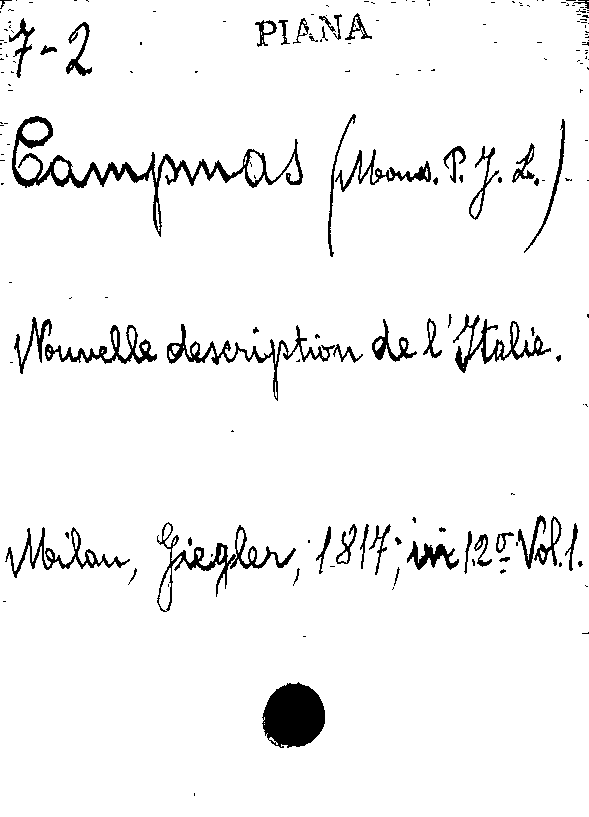 7-2
PIANA
Campmas (Mons. P. J. L.)
Nouvelle description de l'Italie.
Milan, Giegler, 1817; in 12º Vol. 1.